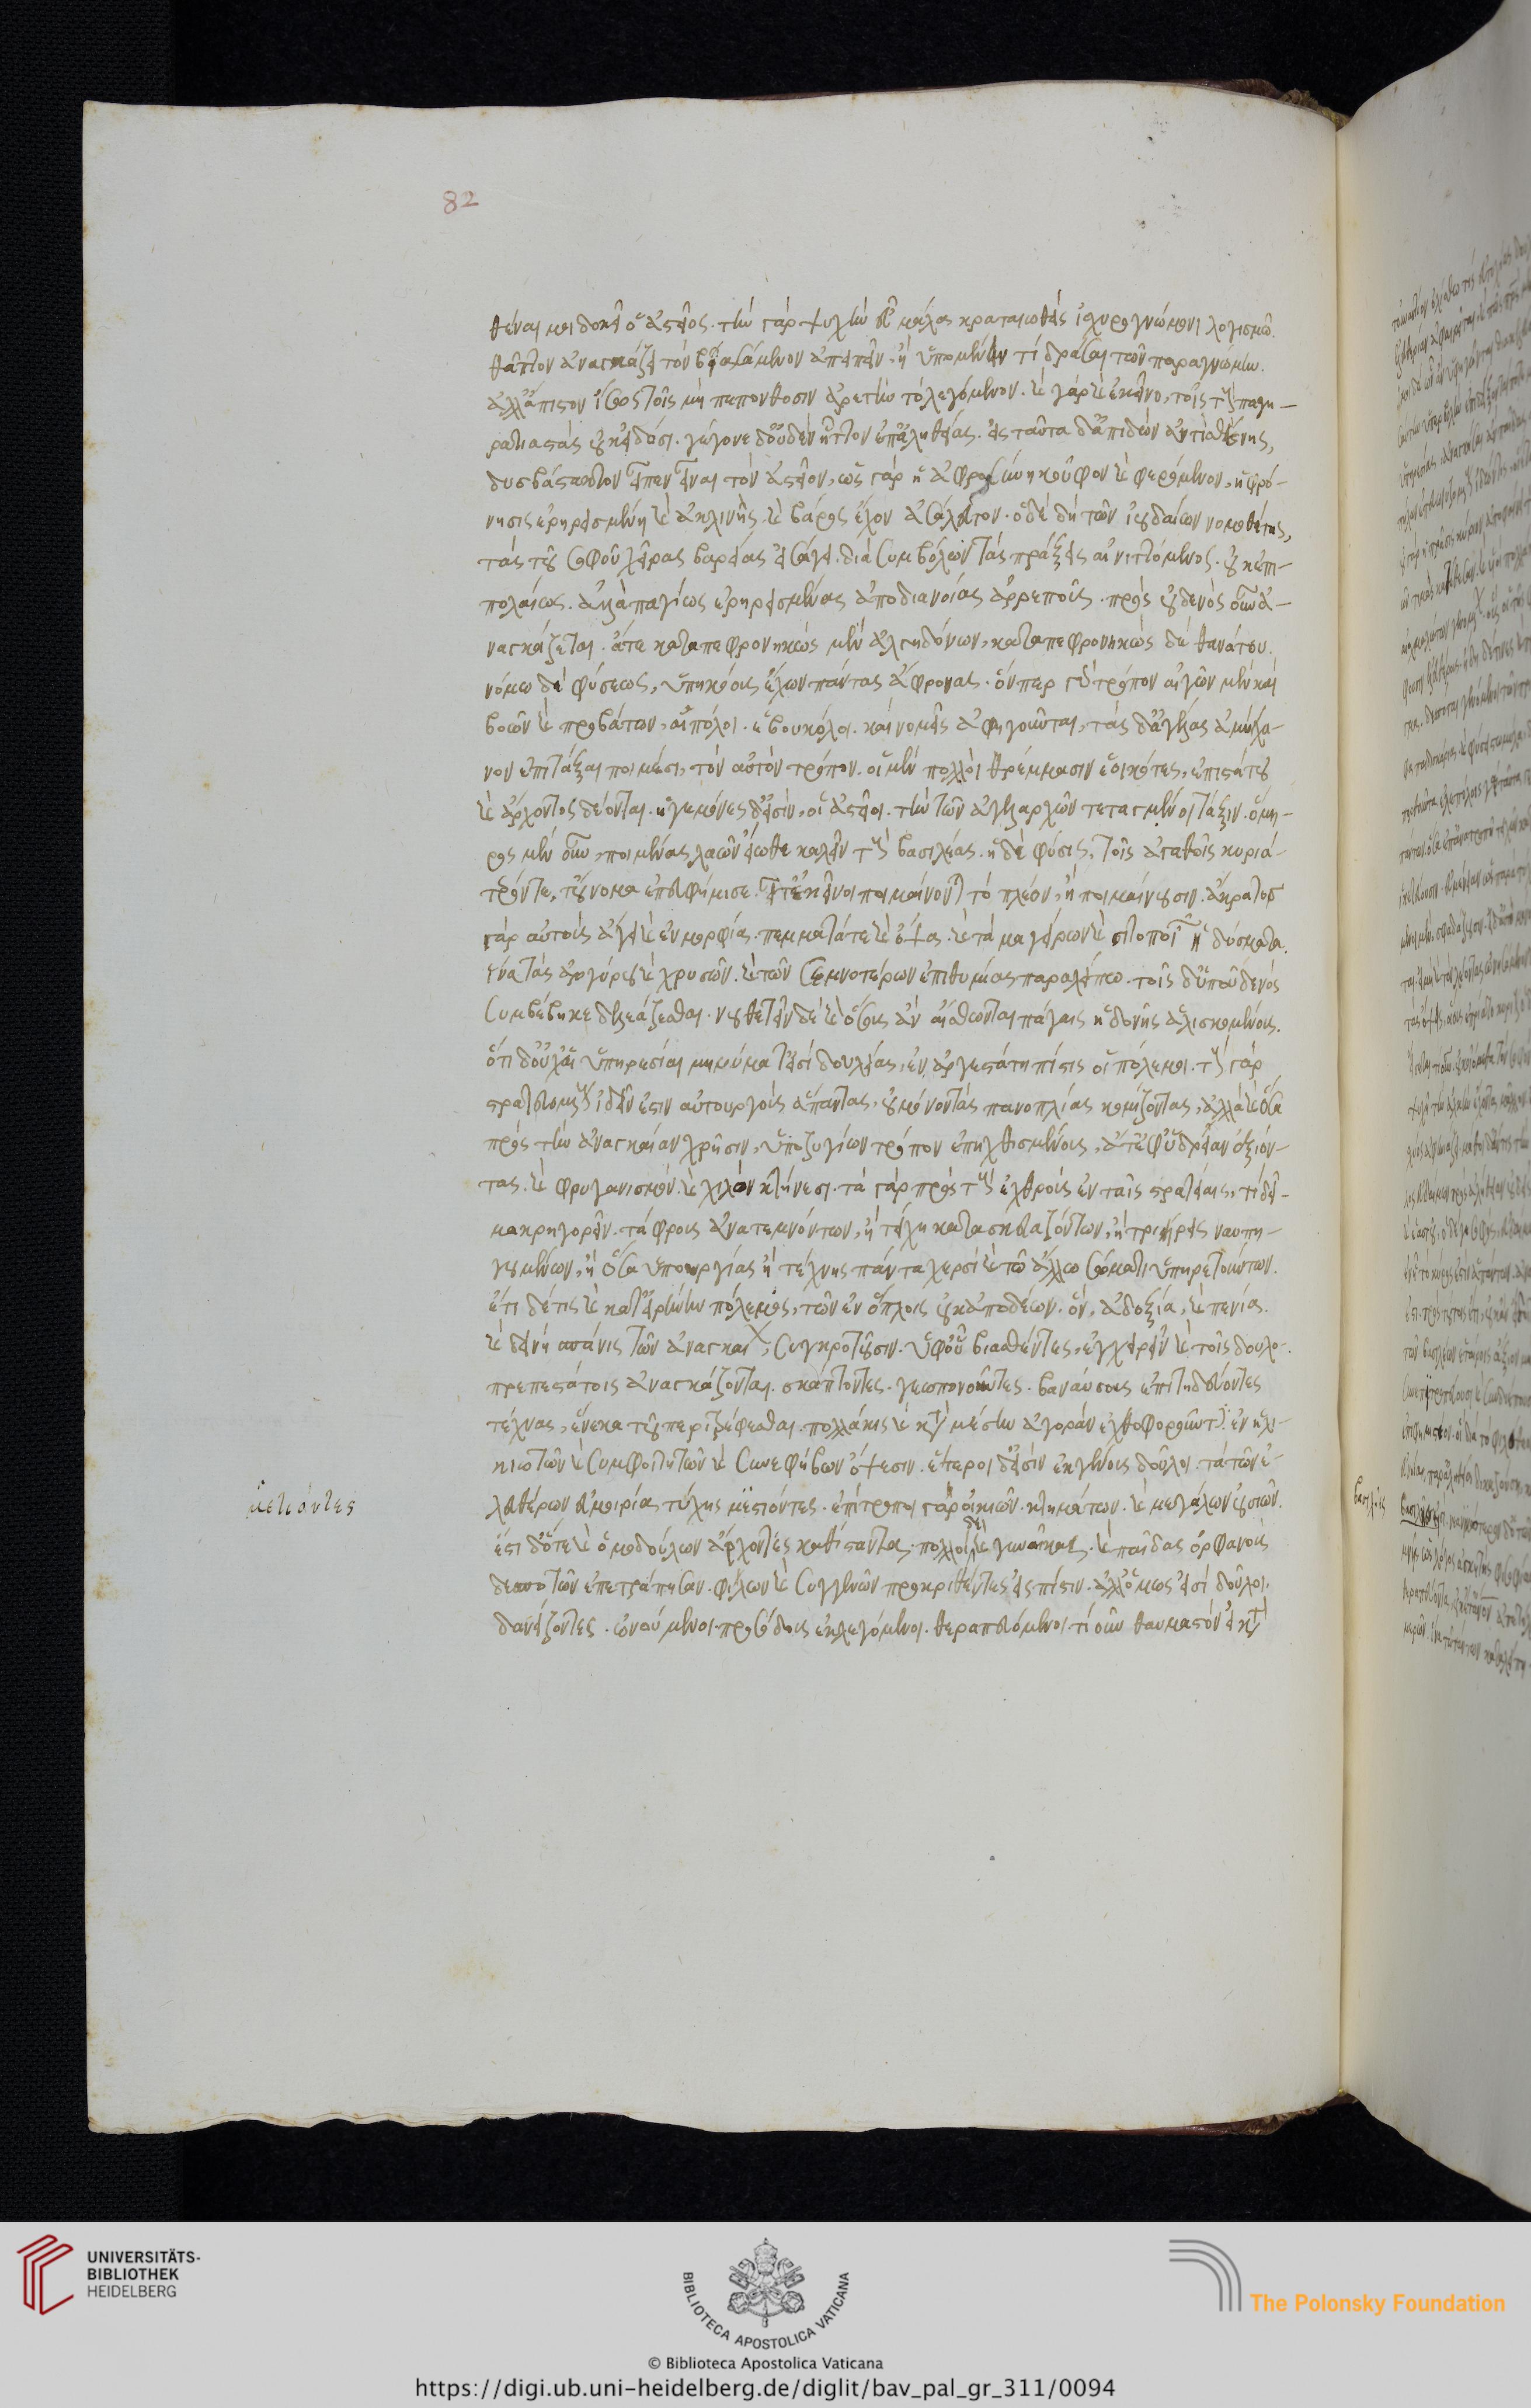 82
θῆναι μοι δοκεῖ ὁ ἀστεῖος. τὴν γὰρ ψυχὴν εὖ μάλα κραταιωθεὶς ἰσχυρογνώμονι λογισμῶ.
θᾶττον ἀναγκάζει τὸν βιασάμενον ἀπειπεῖν, ἢ ὑπομένειν τί δρᾶσαι τῶν παραγνωμὴν.
ἀλλ' ἄπιστον ἴσως τοῖς μὴ πεπονθόσιν ἀρετὴν τὸ λεγόμενον. καὶ γὰρ καὶ ἐκεῖνο, τοῖς τοὺς παγκ-
ρατιαστὰς οὐκ εἰδόσι. γέγονε δ' οὐδὲν ἧττον ἐπ' ἀληθείας. εἰς ταῦτα δ' ἀπιδὼν ἀντισθένης,
δυσβάστακτον εἶπεν εἶναι τὸν ἀστεῖον, ὡς γὰρ ἡ ἀφροσύνη κοῦφον καὶ φερόμενον, ἡ φρό-
νησις ἐρηρεισμένη καὶ ἀκλινὴς, καὶ βάρος ἔχον ἀσάλευτον. ὁ δὲ δὴ τῶν ἰουδαίων νομοθέτης,
τὰς τοῦ σοφοῦ χεῖρας βαρείας εἰσάγει. διὰ συμβόλων τὰς πράξεις αἰνιττόμενος. οὐκ ἐπι-
πολαίως. ἀλλὰ παγίως ἐρηρεισμένας ἀπὸ διανοίας ἀρρεποῦς. πρὸς οὐδενὸς οὖν ἀ-
ναγκάζεται. ἅτε καταπεφρονηκὼς μὲν ἀλγηδόνων, καταπεφρονηκὼς δὲ θανάτου.
νόμω δὲ φύσεως, ὑπηκόους ἔχων πάντας ἄφρονας. ὅνπερ γὰρ τρόπον αἰγῶν μὲν καὶ
βοῶν καὶ προβάτων, αἰπόλοι. καὶ βουκόλοι. καὶ νομεῖς ἀφηγοῦνται, τὰς δ' ἀγέλας ἀμήχα-
νον ἐπιτάξαι ποιμέσι, τὸν αὐτὸν τρόπον. οἱ μὲν πολλοὶ θρέμμασιν ἐοικότες, ἐπιστάτου
καὶ ἄρχοντος δέονται. ἡγεμόνες δ' εἰσὶν, οἱ ἀστεῖοι. τὴν τῶν ἀγελαρχῶν τεταγμένοι τάξιν. ὅμη-
ρος μὲν οὖν, ποιμένας λαῶν εἴωθε καλεῖν τοὺς βασιλέας. ἡ δὲ φύσις, τοῖς ἀγαθοῖς κυριώ-
τερον τε, τοὔνομα ἐπεφήμισε. εἴγε ἐκεῖνοι ποιμαίνονται τὸ πλέον, ἢ ποιμαίνουσιν. ἄκρατος
γὰρ αὐτοὺς ἄγει καὶ εὐμορφία. πέμματά τε καὶ ὄψα. καὶ τὰ μαγείρων καὶ σιτοποιῶν ἡδύσματα.
ἵνα τὰς ἀργύρου καὶ χρυσοῦ. καὶ τῶν σεμνοτέρων ἐπιθυμίας παραλείπω. τοῖς δ' ὑπ' οὐδενὸς
συμβέβηκε δελεάζεσθαι. νουθετεῖν δὲ καὶ ὅσους ἂν αἴσθωνται πάγαις ἡδονῆς ἁλισκομένους.
ὅτι δ' οὐχ αἱ ὑπηρεσίαι μηνύματ' εἰσὶ δουλείας, ἐναργεστάτη πίστις οἱ πόλεμοι. τοὺς γὰρ
στρατευομένους ἰδεῖν ἔστιν αὐτουργοὺς ἅπαντας, οὐ μόνον τὰς πανοπλίας κομίζοντας, ἀλλὰ καὶ ὅσα
πρὸς τὴν ἀναγκαίαν χρῆσιν, ὑποζυγίων τρόπον ἐπηχθισμένους, εἶτ' ἐφ' ὑδρείαν ἐξιόν-
τας. καὶ φρυγανισμὸν. καὶ χιλὸν κτήνεσι. τὰ γὰρ πρὸς τοὺς ἐχθροὺς ἐν ταῖς στρατείαις, τί δεῖ
μακρηγορεῖν. τάφρους ἀνατεμνόντων, ἢ τείχη κατασκευαζόντων, ἢ τριήρεις ναυπη-
γουμένων, ἢ ὅσα ὑπουργίας ἢ τέχνης πάντα χερσὶ καὶ τῶ ἄλλω σώματι ὑπηρετούντων.
ἔστι δέ τις καὶ κατ' εἰρήνην πόλεμος, τῶν ἐν ὅπλοις οὐκ ἀποδέων. ὃν, ἀδοξία, καὶ πενία.
καὶ δεινὴ σπάνις τῶν ἀναγκαίων, συγκροτοῦσιν. ὑφ' οὗ βιασθέντες, ἐγχειρεῖν καὶ τοῖς δουλο-
πρεπεστάτοις ἀναγκάζονται. σκάπτοντες. γεωπονοῦντες. βαναύσους ἐπιτηδεύοντες
τέχνας, ἕνεκα τοῦ περιτρέφεσθαι. πολλάκις καὶ κατὰ μέσην ἀγορὰν ἀχθοφοροῦντες. ἐν ἡλι-
κιωτῶν καὶ συμφοιτητῶν καὶ συνεφήβων ὄψεσιν. ἕτεροι δ' εἰσὶν ἐκ γένους δοῦλοι. τὰ τῶν ἐ-
λευθέρων εὐμοιρία τύχης μετιόντες. ἐπίτροποι γὰρ οἰκιῶν. κτημάτων. καὶ μεγάλων οὐσιῶν.
μετιόντες
ἔστι δ' ὅτε καὶ ὁμοδούλων ἄρχοντες καθίστανται. πολλοὶ δὲ καὶ γυναῖκας. καὶ παῖδας ὀρφανοὺς
δεσποτῶν ἐπετράπησαν. φίλων καὶ συγγενῶν προκριθέντες εἰς πίστιν. ἀλλ' ὅμως εἰσὶ δοῦλοι.
δανείζοντες. ὠνούμενοι. προσόδους ἐκλεγόμενοι. θεραπευόμενοι. τί οὖν θαυμαστὸν εἰ κατὰ
βασιλεὺς
UNIVERSITÄTS-
BIBLIOTHEK
HEIDELBERG
BIBLIOTECA APOSTOLICA VATICANA
The Polonsky Foundation
© Biblioteca Apostolica Vaticana
https://digi.ub.uni-heidelberg.de/diglit/bav_pal_gr_311/0094